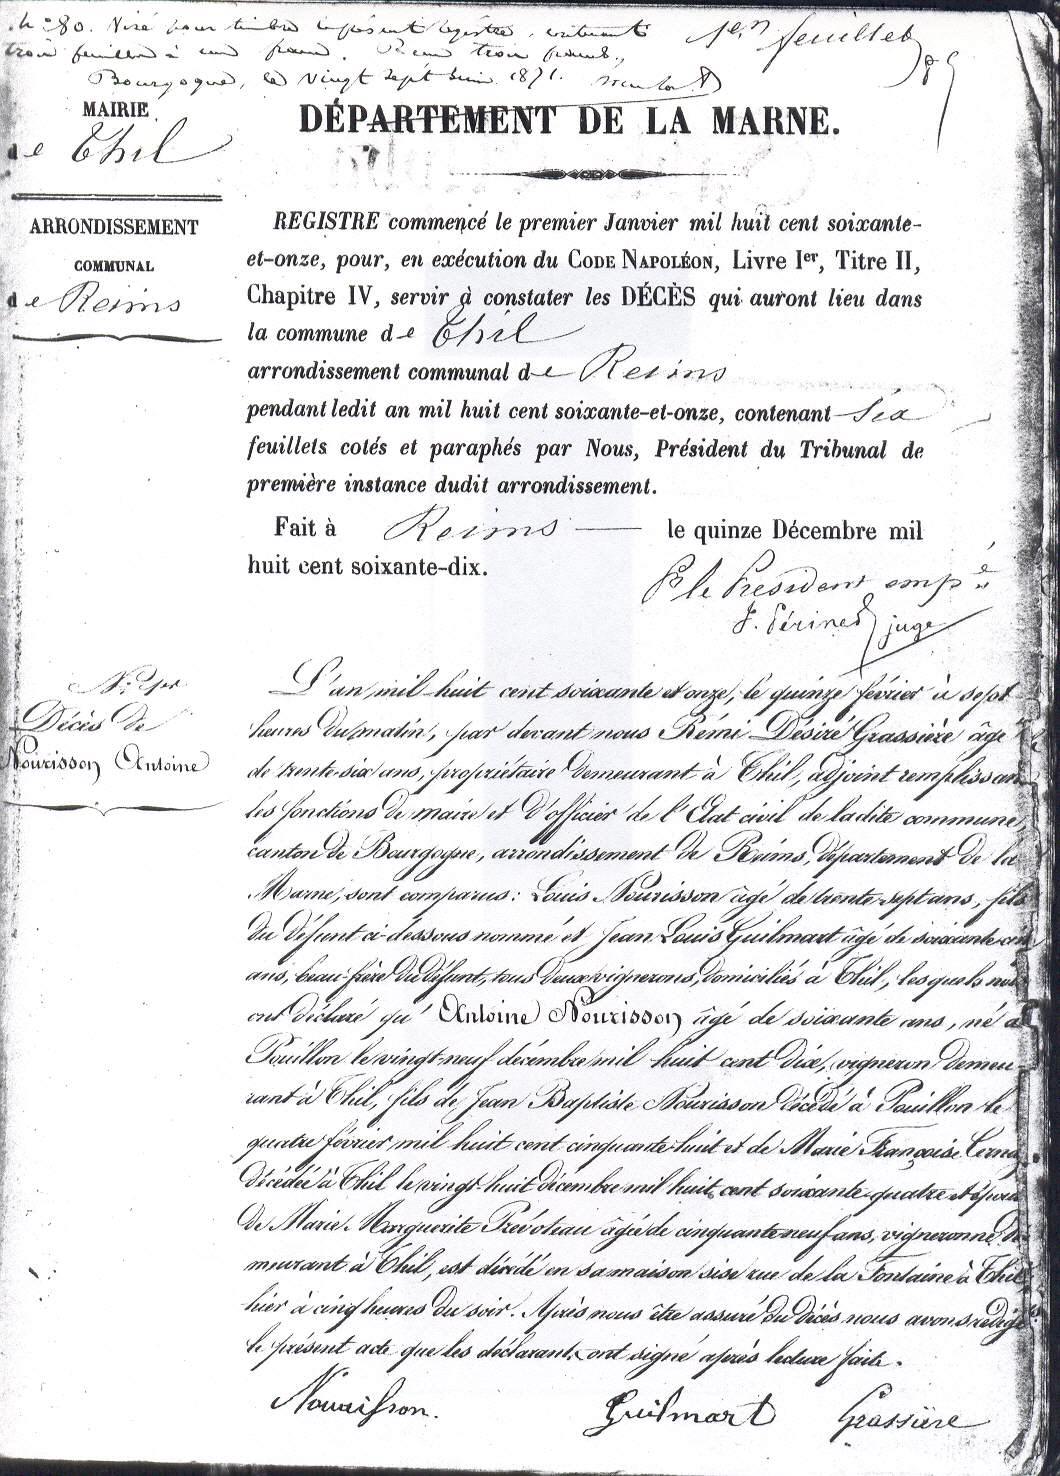 N° 80. Visé pour timbre le présent registre, contenant
trois feuilles à un franc. Reçu trois francs,
Bourgogne, le vingt sept Juin 1871.
1er feuillet
MAIRIE
de Thil
DÉPARTEMENT DE LA MARNE.
ARRONDISSEMENT
COMMUNAL
de Reims
REGISTRE commencé le premier Janvier mil huit cent soixante-
et-onze, pour, en exécution du CODE NAPOLÉON, Livre Ier, Titre II,
Chapitre IV, servir à constater les DÉCÈS qui auront lieu dans
la commune de Thil
arrondissement communal de Reims
pendant ledit an mil huit cent soixante-et-onze, contenant six
feuillets cotés et paraphés par Nous, Président du Tribunal de
première instance dudit arrondissement.
Fait à Reims le quinze Décembre mil
huit cent soixante-dix.
Pr le Président empé
juge
N° 1er
Décès de
Nourisson Antoine
L'an mil huit cent soixante et onze, le quinze février à sept
heures du matin, par devant nous Rémi Désiré Grassière âgé
de trente-six ans, propriétaire demeurant à Thil, adjoint remplissant
les fonctions de maire et d'officier de l'Etat civil de ladite commune,
canton de Bourgogne, arrondissement de Reims, département de la
Marne, sont comparus: Louis Nourisson âgé de trente-sept ans, fils
du défunt ci-dessous nommé et Jean Louis Guilmart âgé de soixante
ans, beau-frère du défunt, tous deux vignerons, domiciliés à Thil, lesquels nous
ont déclaré qu'Antoine Nourisson âgé de soixante ans, né à
Pouillon le vingt-neuf décembre mil huit cent dix, vigneron demeu
rant à Thil, fils de Jean Baptiste Nourisson décédé à Pouillon le
quatre février mil huit cent cinquante-huit et de Marie Françoise
décédée à Thil le vingt-huit décembre mil huit cent soixante-quatre et époux
de Marie Marguerite Prévoteau âgée de cinquante-neuf ans, vigneronne de
meurant à Thil, est décédé en sa maison sise rue de la Fontaine à Thil
hier à cinq heures du soir. Après nous être assuré du décès, nous avons rédigé
le présent acte que les déclarants ont signé après lecture faite.
Nourisson.
Guilmart
Grassière